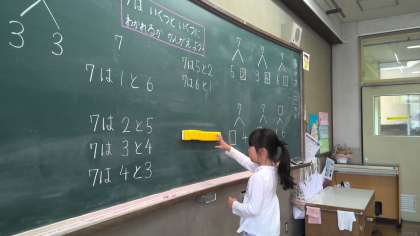 3 3
7は いくつと いくつに
わかれるか かんがえよう。
7
7は1と6
7は2と5
7は3と4
7は4と3
7は5と2
7は6と1
7 7 7
5 2
7 7 7